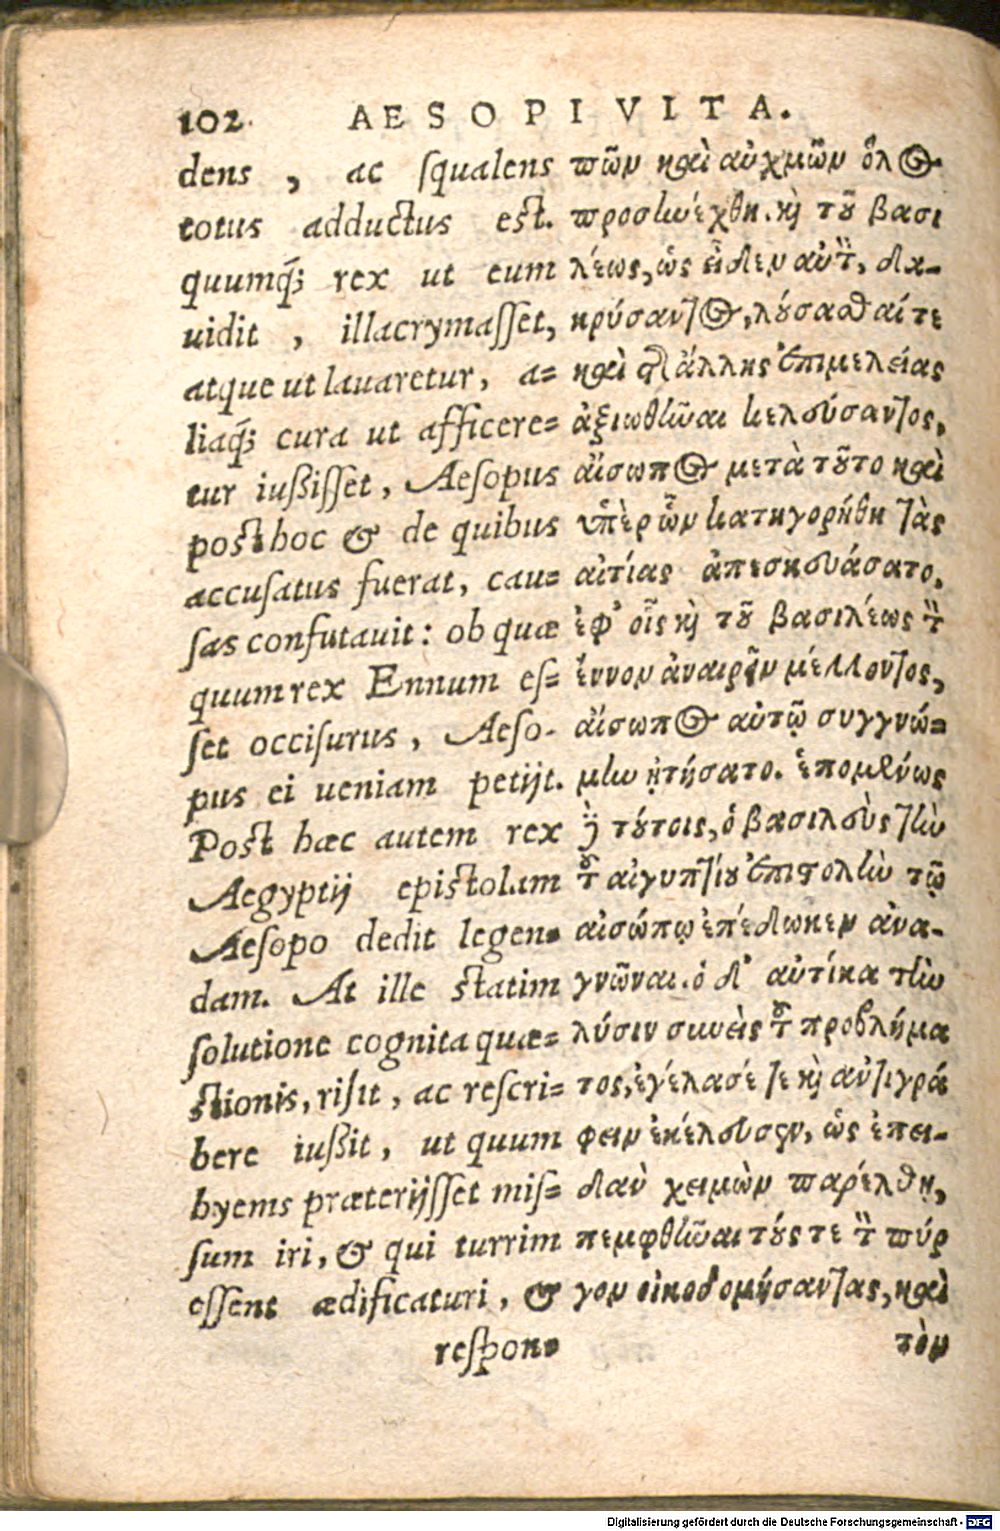 102 AESOPI VITA.
dens , ac ſqualens
totus adductus eſt.
quumq́; rex ut eum
uidit , illacrymaſſet,
atque ut lauaretur, a=
liaq́; cura ut afficere=
tur iußiſſet, Aeſopus
poſt hoc & de quibus
accuſatus fuerat, cau=
ſas confutauit: ob quæ
quum rex Ennum eſ=
ſet occiſurus, Aeſo-
pus ei ueniam petijt.
Poſt hæc autem rex
Aegyptij epiſtolam
Aeſopo dedit legen=
dam. At ille ſtatim
ſolutione cognita quæ=
ſtionis, riſit, ac reſcri=
bere iußit, ut quum
hyems præterijſſet miſ=
ſum iri, & qui turrim
eſſent ædificaturi, &
reſpon=
πῶν καὶ αὐχμῶν ὅλος
προσηνέχθη. καὶ τοῦ βασι
λέως, ὡς εἶδεν αὐτὸν, δα-
κρύσαντος, λούσασθαί τε
καὶ τῆς ἄλλης ἐπιμελείας
ἀξιωθῆναι κελεύσαντος,
αἴσωπος μετὰ τοῦτο καὶ
ὑπὲρ ὧν κατηγορήθη τὰς
αἰτίας ἀπεσκευάσατο.
ἐφ᾽ οἷς καὶ τοῦ βασιλέως τὸν
ἔννον ἀναιρεῖν μέλλοντος,
αἴσωπος αὐτῷ συγγνώ=
μην ᾐτήσατο. ἑπομένως
δὲ τούτοις, ὁ βασιλεὺς τὴν
τοῦ αἰγυπτίου ἐπιστολὴν τῷ
αἰσώπῳ ἐπέδωκεν ἀνα-
γνῶναι. ὁ δ᾽ αὐτίκα τὴν
λύσιν συνεὶς τοῦ προβλήμα
τος, ἐγέλασέ τε καὶ ἀντιγρά
φειν ἐκέλευσεν, ὡς ἐπει-
δὰν χειμὼν παρέλθῃ,
πεμφθῆναι τούς τε τὸν πύρ
γον οἰκοδομήσαντας, καὶ
τὸν
Digitalisierung gefördert durch die Deutsche Forschungsgemeinschaft - DFG